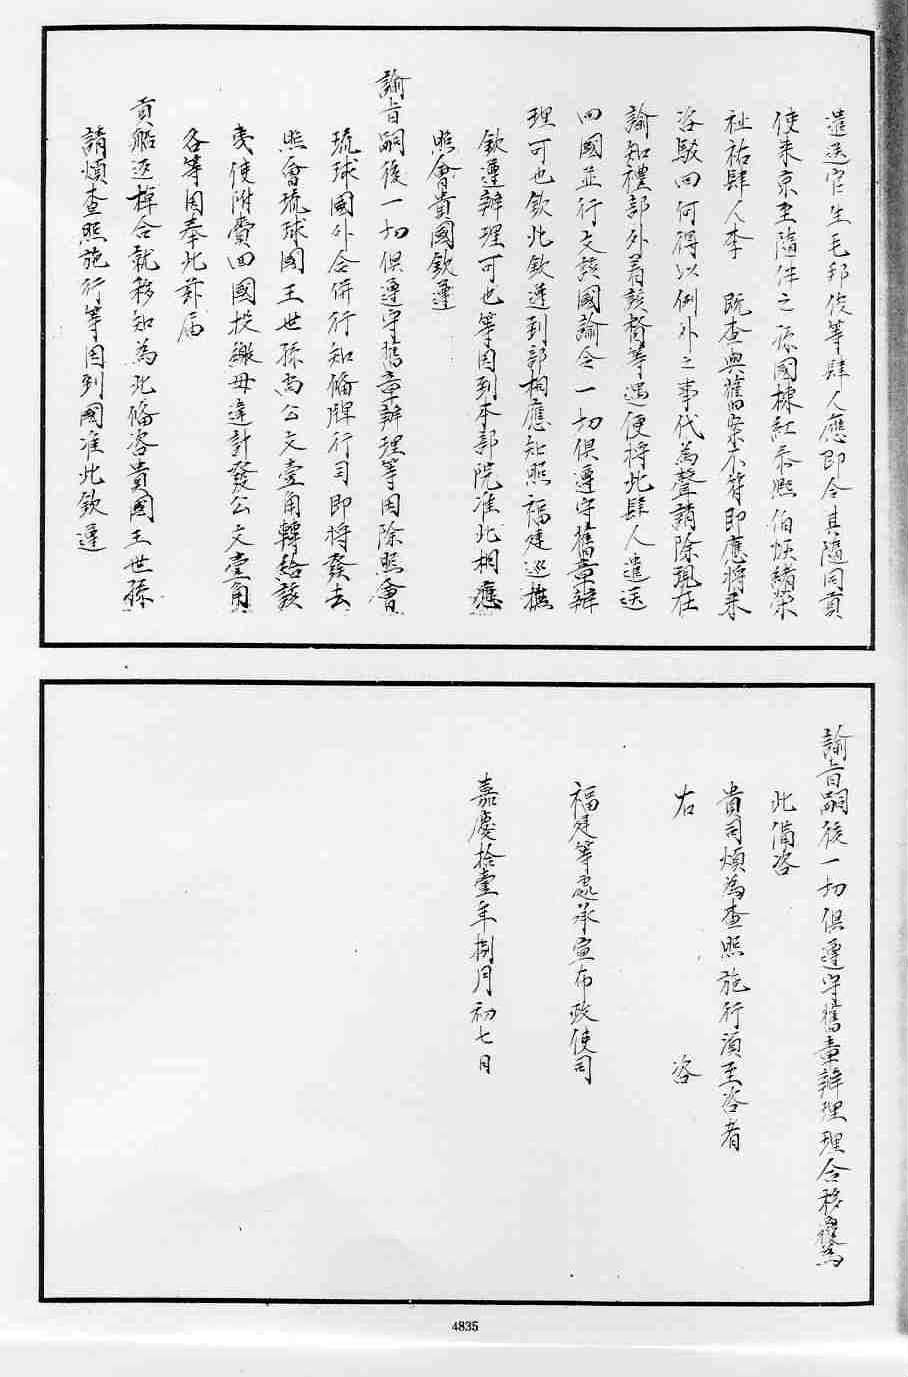 遣送官生毛邦俊等肆人應即令其隨同貢
使來京至隨伴之孫國棟紅泰熙伯烻緒榮
祉祐肆人李 既查與舊案不符即應將來
咨駁回何得以例外之事代為聲請除現在
諭知禮部外着該督等遇便將此肆人遣送
回國並行文該國諭令一切俱遵守舊章辦
理可也欽此欽遵到部相應知照福建巡撫
欽遵辦理可也等因到本部院准此相應
照會貴國欽遵
諭旨嗣後一切俱遵守舊章辦理等因除照會
琉球國外合併行知備牌行司即將發去
照會琉球國王世孫尚公文壹角轉給該
夷使附賫回國投繳毋違計發公文壹角
各等因奉此茲屆
貢船返棹合就移知為此備咨貴國王世孫
請煩查照施行等因到國准此欽遵
諭旨嗣後一切俱遵守舊章辦理理合移覆為
此備咨
貴司煩為查照施行須至咨者
右 咨
福建等處承宣布政使司
嘉慶拾壹年捌月初七日
4835